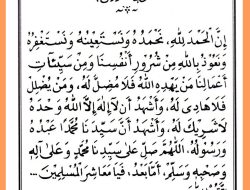 إِنَّ الْحَمْدَ لِلّٰهِ، نَحْمَدُهُ وَنَسْتَعِينُهُ وَنَسْتَغْفِرُهُ
وَنَعُوذُ بِاللّٰهِ مِنْ شُرُورِ أَنْفُسِنَا وَمِنْ سَيِّئَاتِ
أَعْمَالِنَا مَنْ يَهْدِهِ اللّٰهُ فَلَا مُضِلَّ لَهُ، وَمَنْ يُضْلِلْ
فَلَا هَادِيَ لَهُ، وَأَشْهَدُ أَنْ لَا إِلٰهَ إِلَّا اللّٰهُ وَحْدَهُ
لَا شَرِيكَ لَهُ، وَأَشْهَدُ أَنَّ سَيِّدَنَا مُحَمَّدًا عَبْدُهُ
وَرَسُولُهُ، اَللّٰهُمَّ صَلِّ عَلَى سَيِّدِنَا مُحَمَّدٍ وَعَلَى آلِهِ
وَصَحْبِهِ وَسَلِّمْ، أَمَّا بَعْدُ، فَيَا مَعَاشِرَ الْمُسْلِمِينَ...